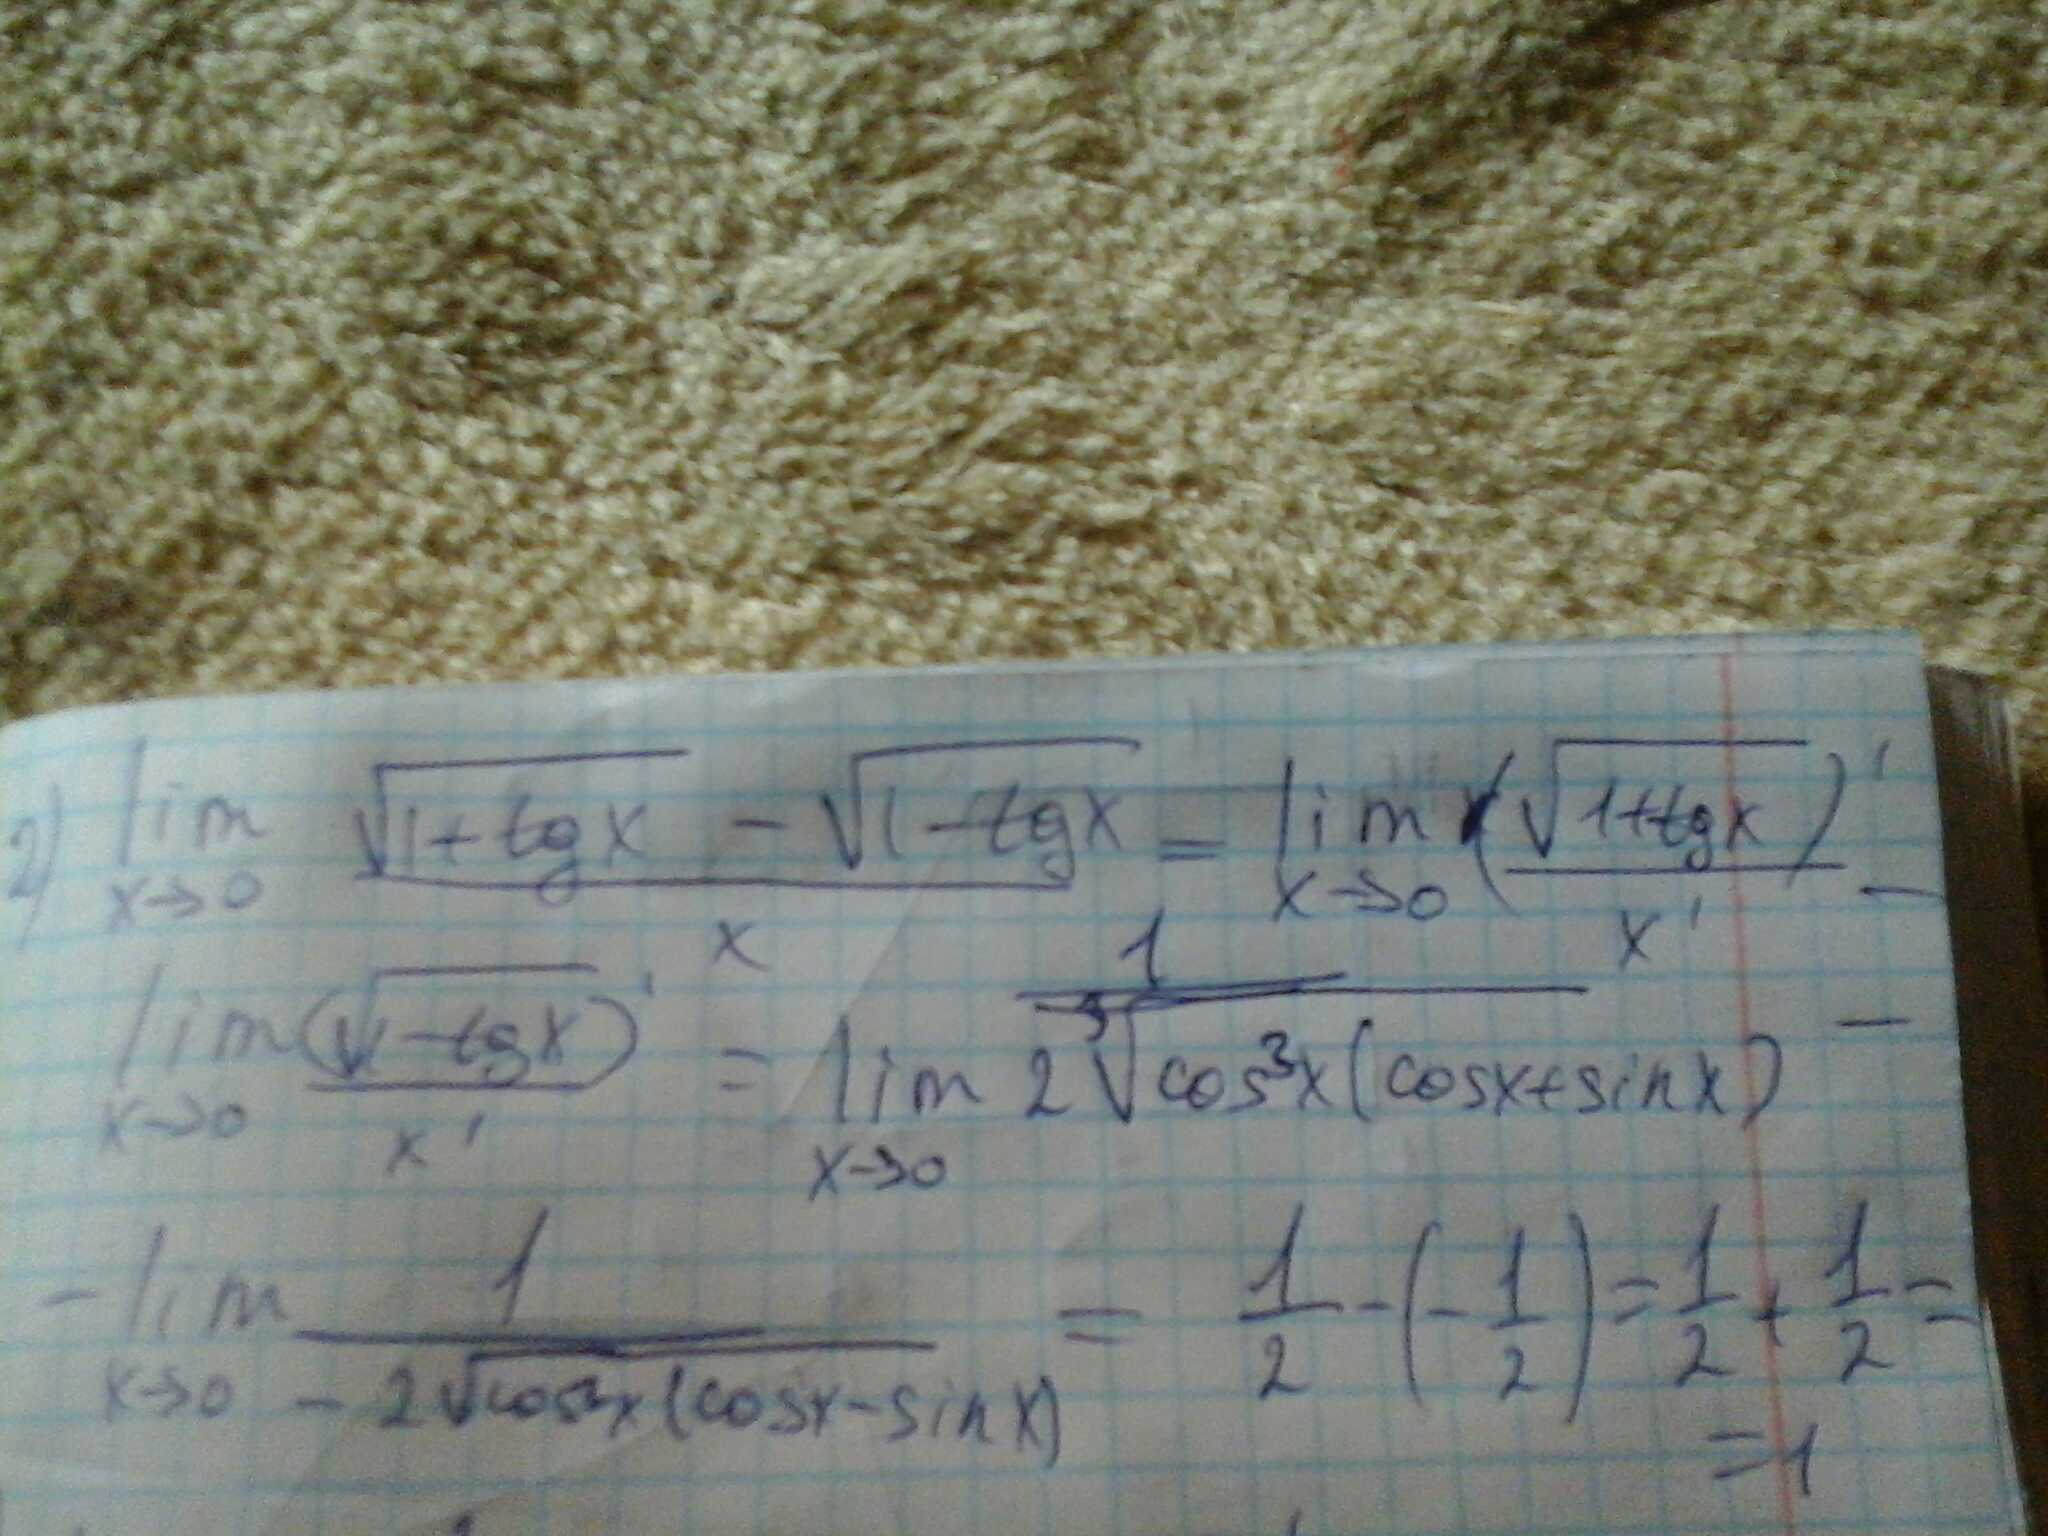 2) lim x→0 (√(1+tgx) − √(1−tgx))/x = lim x→0 (√(1+tgx))'/x' −
lim x→0 (√(1−tgx))'/x' = lim x→0 1/(2√(cos³x(cosx+sinx))) −
− lim x→0 1/(−2√(cos³x(cosx−sinx))) = 1/2 − (−1/2) = 1/2 + 1/2 =
= 1